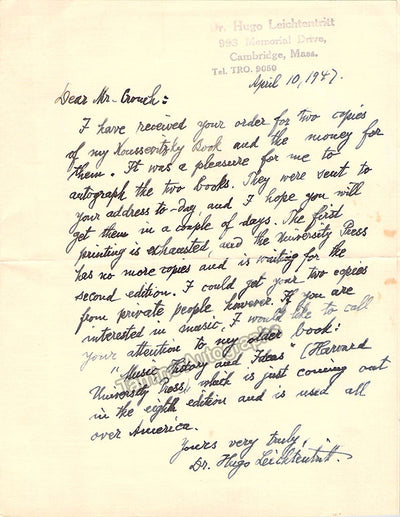 Dr. Hugo Leichtentritt
993 Memorial Drive,
Cambridge, Mass.
Tel. TRO. 9050
April 10, 1947.
Dear Mr. Crouch:
I have received your order for two copies
of my Koussevitzky Book and the money for
them. It was a pleasure for me to
autograph the two books. They were sent to
your address to-day and I hope you will
get them in a couple of days. The first
printing is exhausted, and the University Press
has no more copies and is waiting for the
second edition. I could get your two copies
from private people however. If you are
interested in music, I would like to call
your attention to my older book:
"Music, History and Ideas" (Harvard
University Press) which is just coming out
in the eighth edition and is used all
over America.
Yours very truly,
Dr. Hugo Leichtentritt.
Tamino Autographs